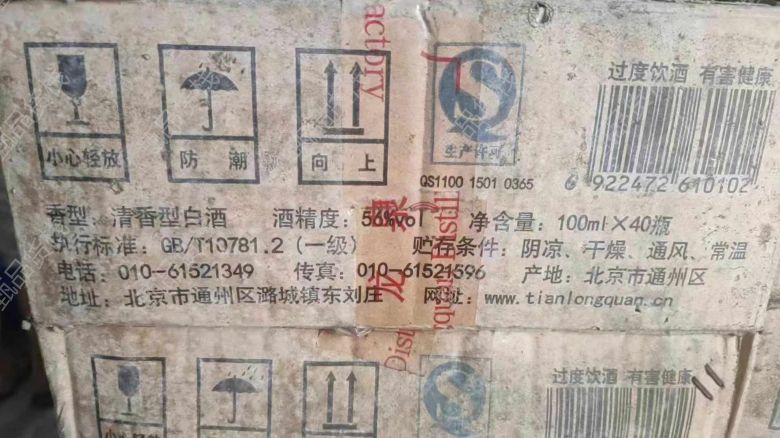 过度饮酒 有害健康
小心轻放
防 潮
向 上
生产许可
QS1100 1501 0365
6 922472 610102
actory
香型：清香型白酒 酒精度：56%vol 净含量：100ml×40瓶
执行标准：GB/T10781.2（一级） 贮存条件：阴凉、干燥、通风、常温
电话：010-61521349 传真：010-61521596 产地：北京市通州区
地址：北京市通州区潞城镇东刘庄 网址：www.tianlongquan.cn
龙泉
过度饮酒 有害健康